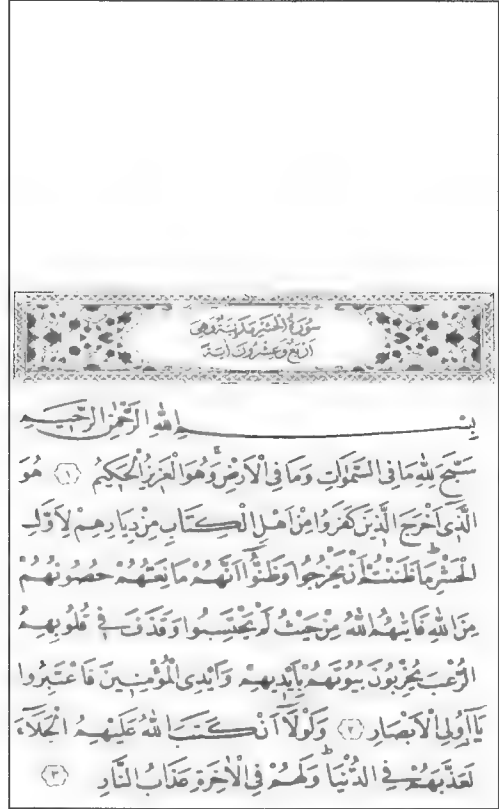 سُورَةُ الْحَشْرِ مَدَنِيَّةٌ وَهِيَ
اَرْبَعٌ وَعِشْرُونَ اٰيَةً
بِسْمِ اللهِ الرَّحْمٰنِ الرَّحِيمِ
سَبَّحَ لِلّٰهِ مَا فِى السَّمٰوَاتِ وَمَا فِى الْاَرْضِۚ وَهُوَ الْعَزِيزُ الْحَكِيمُ ﴿١﴾ هُوَ
الَّذِٓى اَخْرَجَ الَّذِينَ كَفَرُوا مِنْ اَهْلِ الْكِتَابِ مِنْ دِيَارِهِمْ لِاَوَّلِ
الْحَشْرِۜ مَا ظَنَنْتُمْ اَنْ يَخْرُجُوا وَظَنُّٓوا اَنَّهُمْ مَانِعَتُهُمْ حُصُونُهُمْ
مِنَ اللهِ فَاَتٰيهُمُ اللهُ مِنْ حَيْثُ لَمْ يَحْتَسِبُوا وَقَذَفَ فِى قُلُوبِهِمُ
الرُّعْبَ يُخْرِبُونَ بُيُوتَهُمْ بِاَيْدِيهِمْ وَاَيْدِى الْمُؤْمِنِينَ فَاعْتَبِرُوا
يَٓا اُو۬لِى الْاَبْصَارِ ﴿٢﴾ وَلَوْلَٓا اَنْ كَتَبَ اللهُ عَلَيْهِمُ الْجَلَٓاءَ
لَعَذَّبَهُمْ فِى الدُّنْيَاۜ وَلَهُمْ فِى الْاٰخِرَةِ عَذَابُ النَّارِ ﴿٣﴾